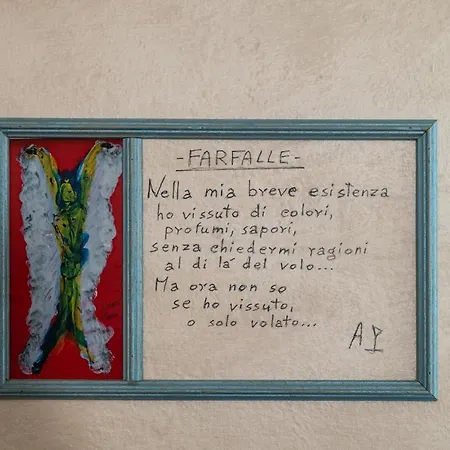 -FARFALLE-
Nella mia breve esistenza
ho vissuto di colori,
profumi, sapori,
senza chiedermi ragioni
al di lá del volo...
Ma ora non so
se ho vissuto,
o solo volato...
AP